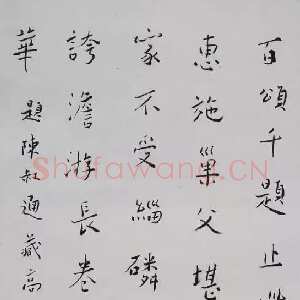 百頌千題止
惠施巢父堪
家不受緇磷
誇澹游長卷
華 題陳叔通藏高
Shufawang.CN